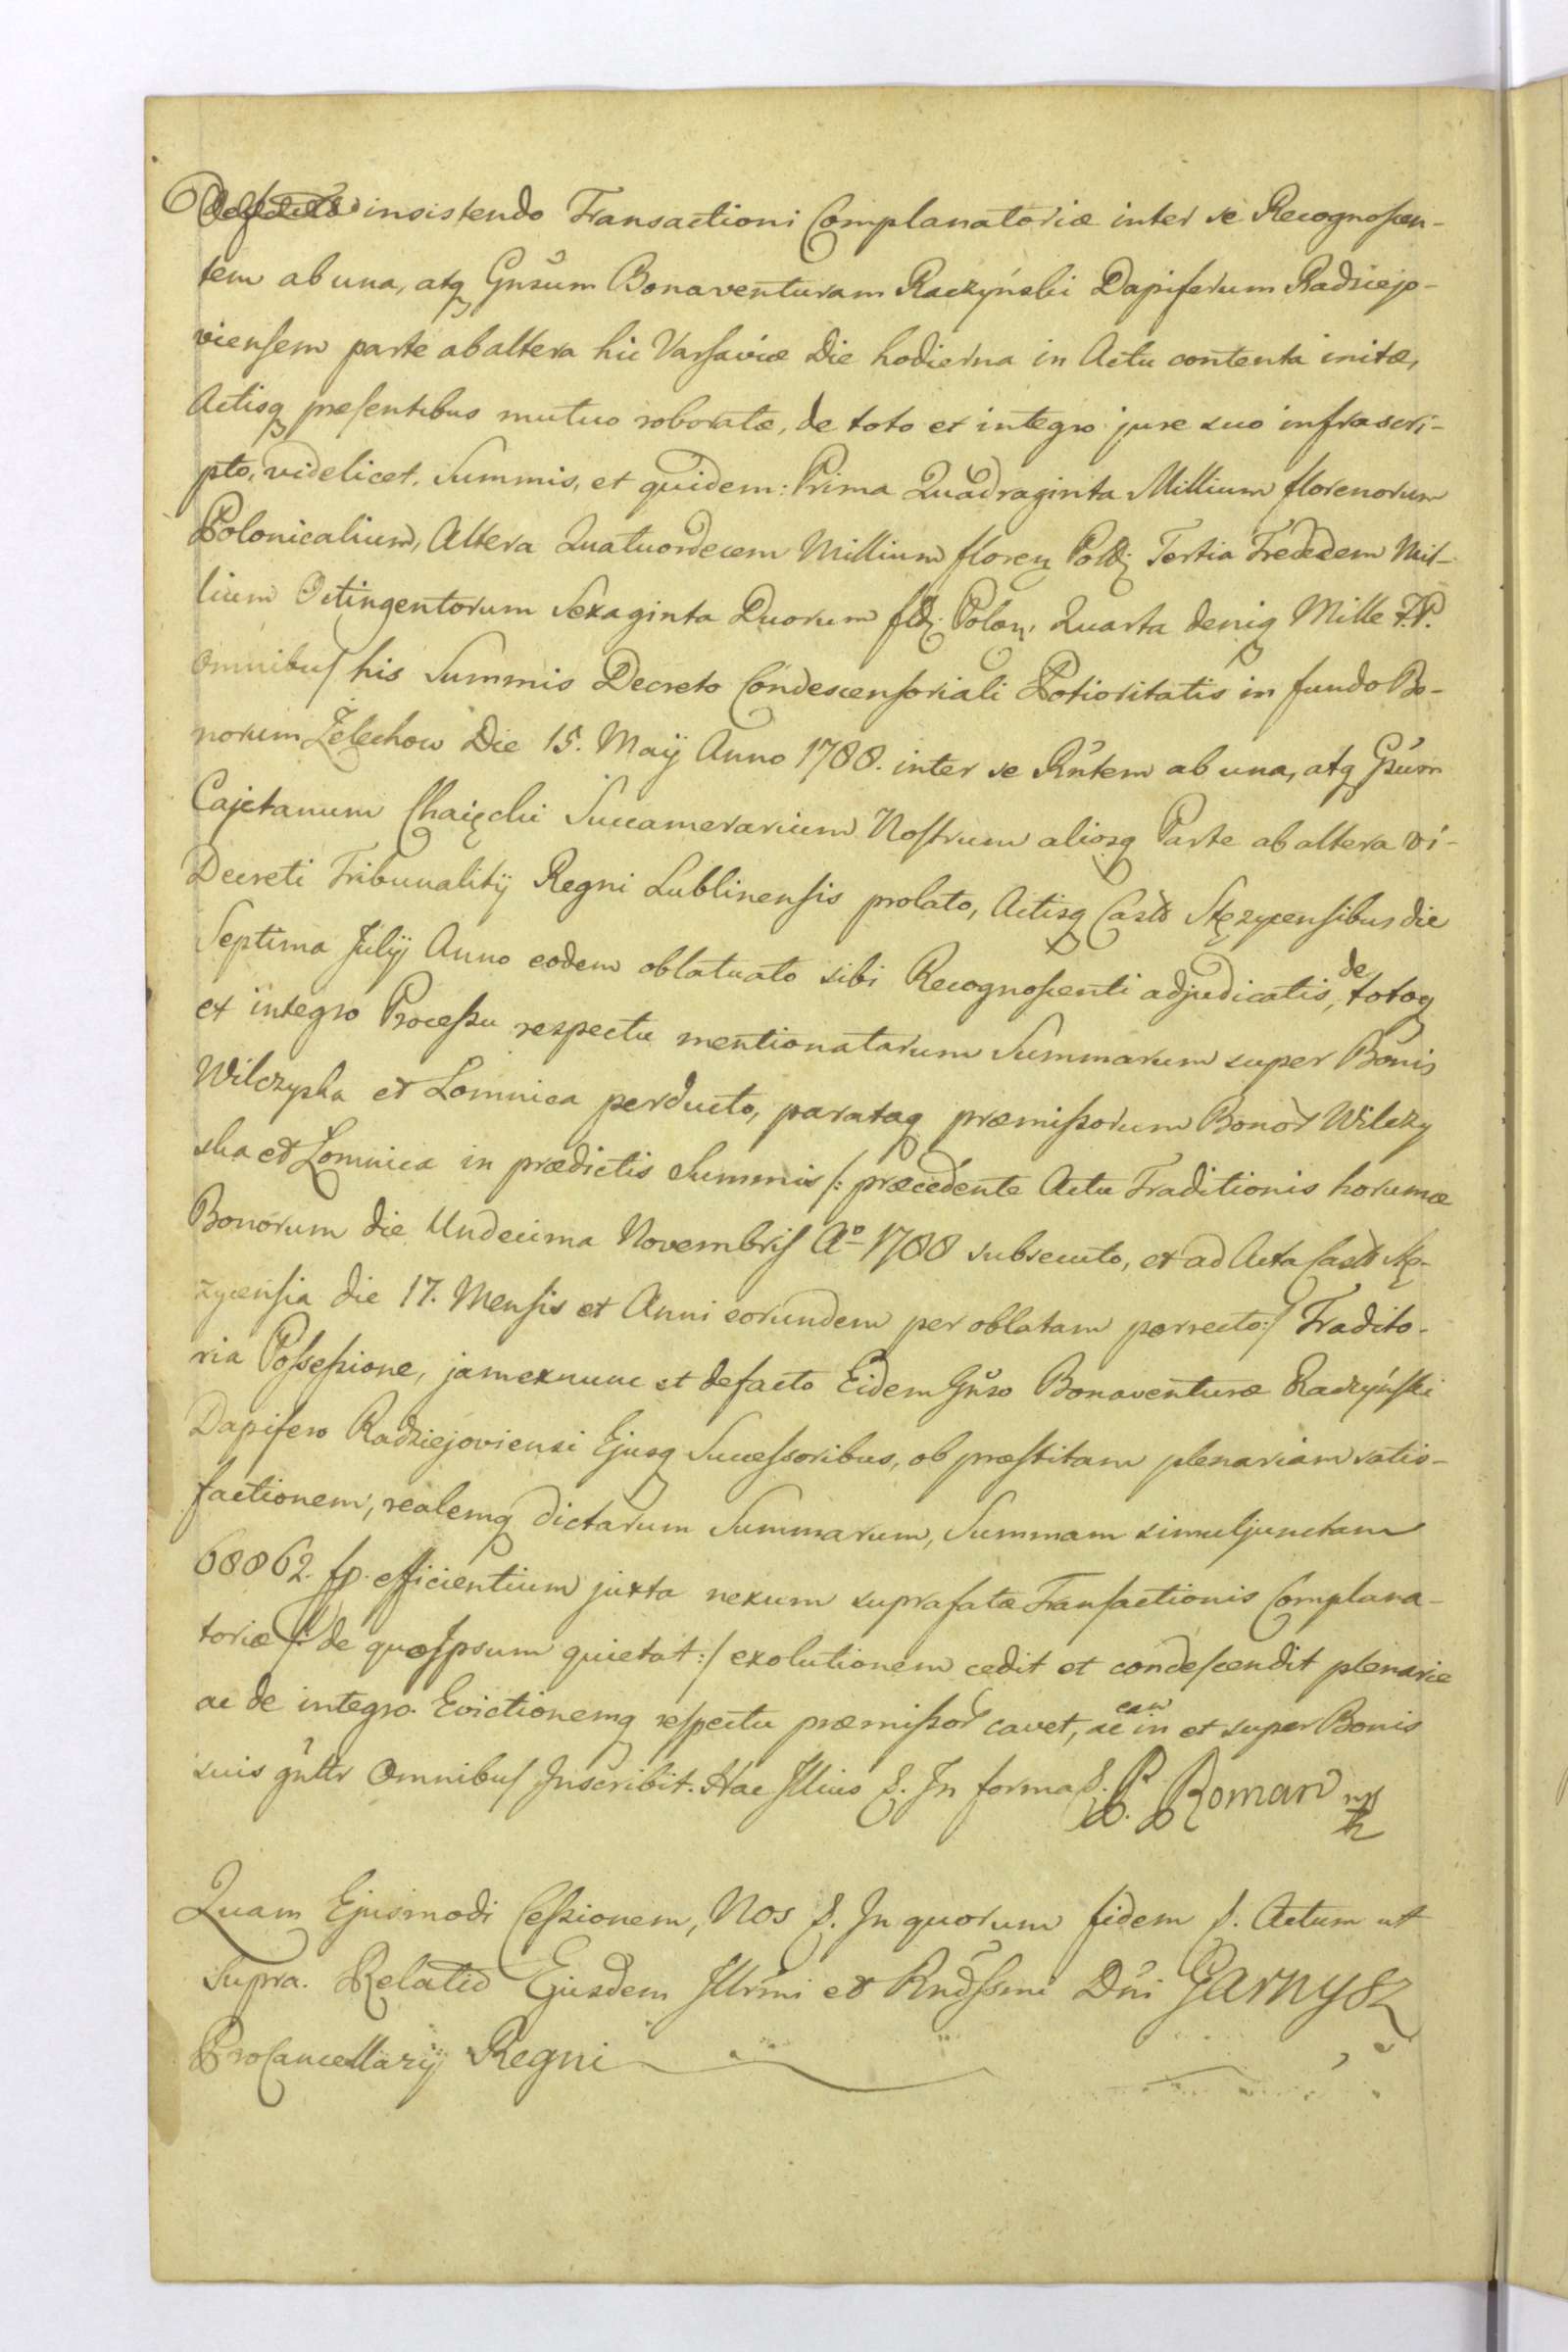 insistendo Transactioni Complanatoriæ inter se Recognoscen-
tem ab una, atq Gnsum Bonaventuram Raczyński Dapiferum Radziejo-
viensem parte ab altera hic Varsaviæ Die hodierna in Actu contenta initæ,
Actisq præsentibus mutuo roboratæ, de toto et integro jure suo infrascri-
pto, videlicet. Summis, et quidem: Prima Quadraginta Millium florenorum
Polonicalium, Altera Quatuordecem Millium floren Poldj Tertia Tredecem Mil-
lium Octingentorum Sexaginta Duorum fldj Polon, Quarta deniq Mille F.P.
Omnibus his Summis Decreto Condescensoriali Potioritatis in fundo Bo-
norum Żelechow Die 15. Maÿ Anno 1788. inter se Rntem ab una, atq Gsum
Cajetanum Succamerarium Nostrum aliosq Parte ab altera vi-
Decreti Tribunalitÿ Regni Lublinensis prolato, Actisq Castr Stęzycensibus die
Septima Julÿ Anno eodem oblatuato sibi Recognoscenti adjudicatis, de totoq
et integro Processu respectu mentionatarum Summarum super Bonis
Wilczyska et Lomnica perducto, parataq præmissorum Bonor Wilczy
ska et Lomnica in prædictis Summis /: præcedente Actu Traditionis horumce
Bonorum die Undecima Novembris Aº 1788 subsecuto, et ad Acta Castr Stę-
zycensia die 17. Mensis et Anni eorundem per oblatam porrecto:/ Tradito-
ria Possessione, jamexnunc et defacto Eidem Gnso Bonaventuræ Raczyński
Dapifero Radziejoviensi Ejusq Successoribus, ob præstitam plenariam satis-
factionem, realemq dictarum Summarum, Summam simuljunctam
68862. fp. efficientium juxta nexum suprafatæ Transactionis Complana-
toriæ /: de quo Ipsum quietat:/ exolutionem cedit et condescendit plenarie
ac de integro. Evictionemq respectu præmissor cavet, ac eam in et super Bonis
suis gnltr Omnibus Inscribit. Hac Illius &. In forma &. P. Roman mp
Quam Ejusmodi Cessionem, Nos &. In quorum fidem &. Actum ut
Supra. Relatio Ejusdem Illrmi et Rndssmi Dni Garnysz
ProCancellarÿ Regni